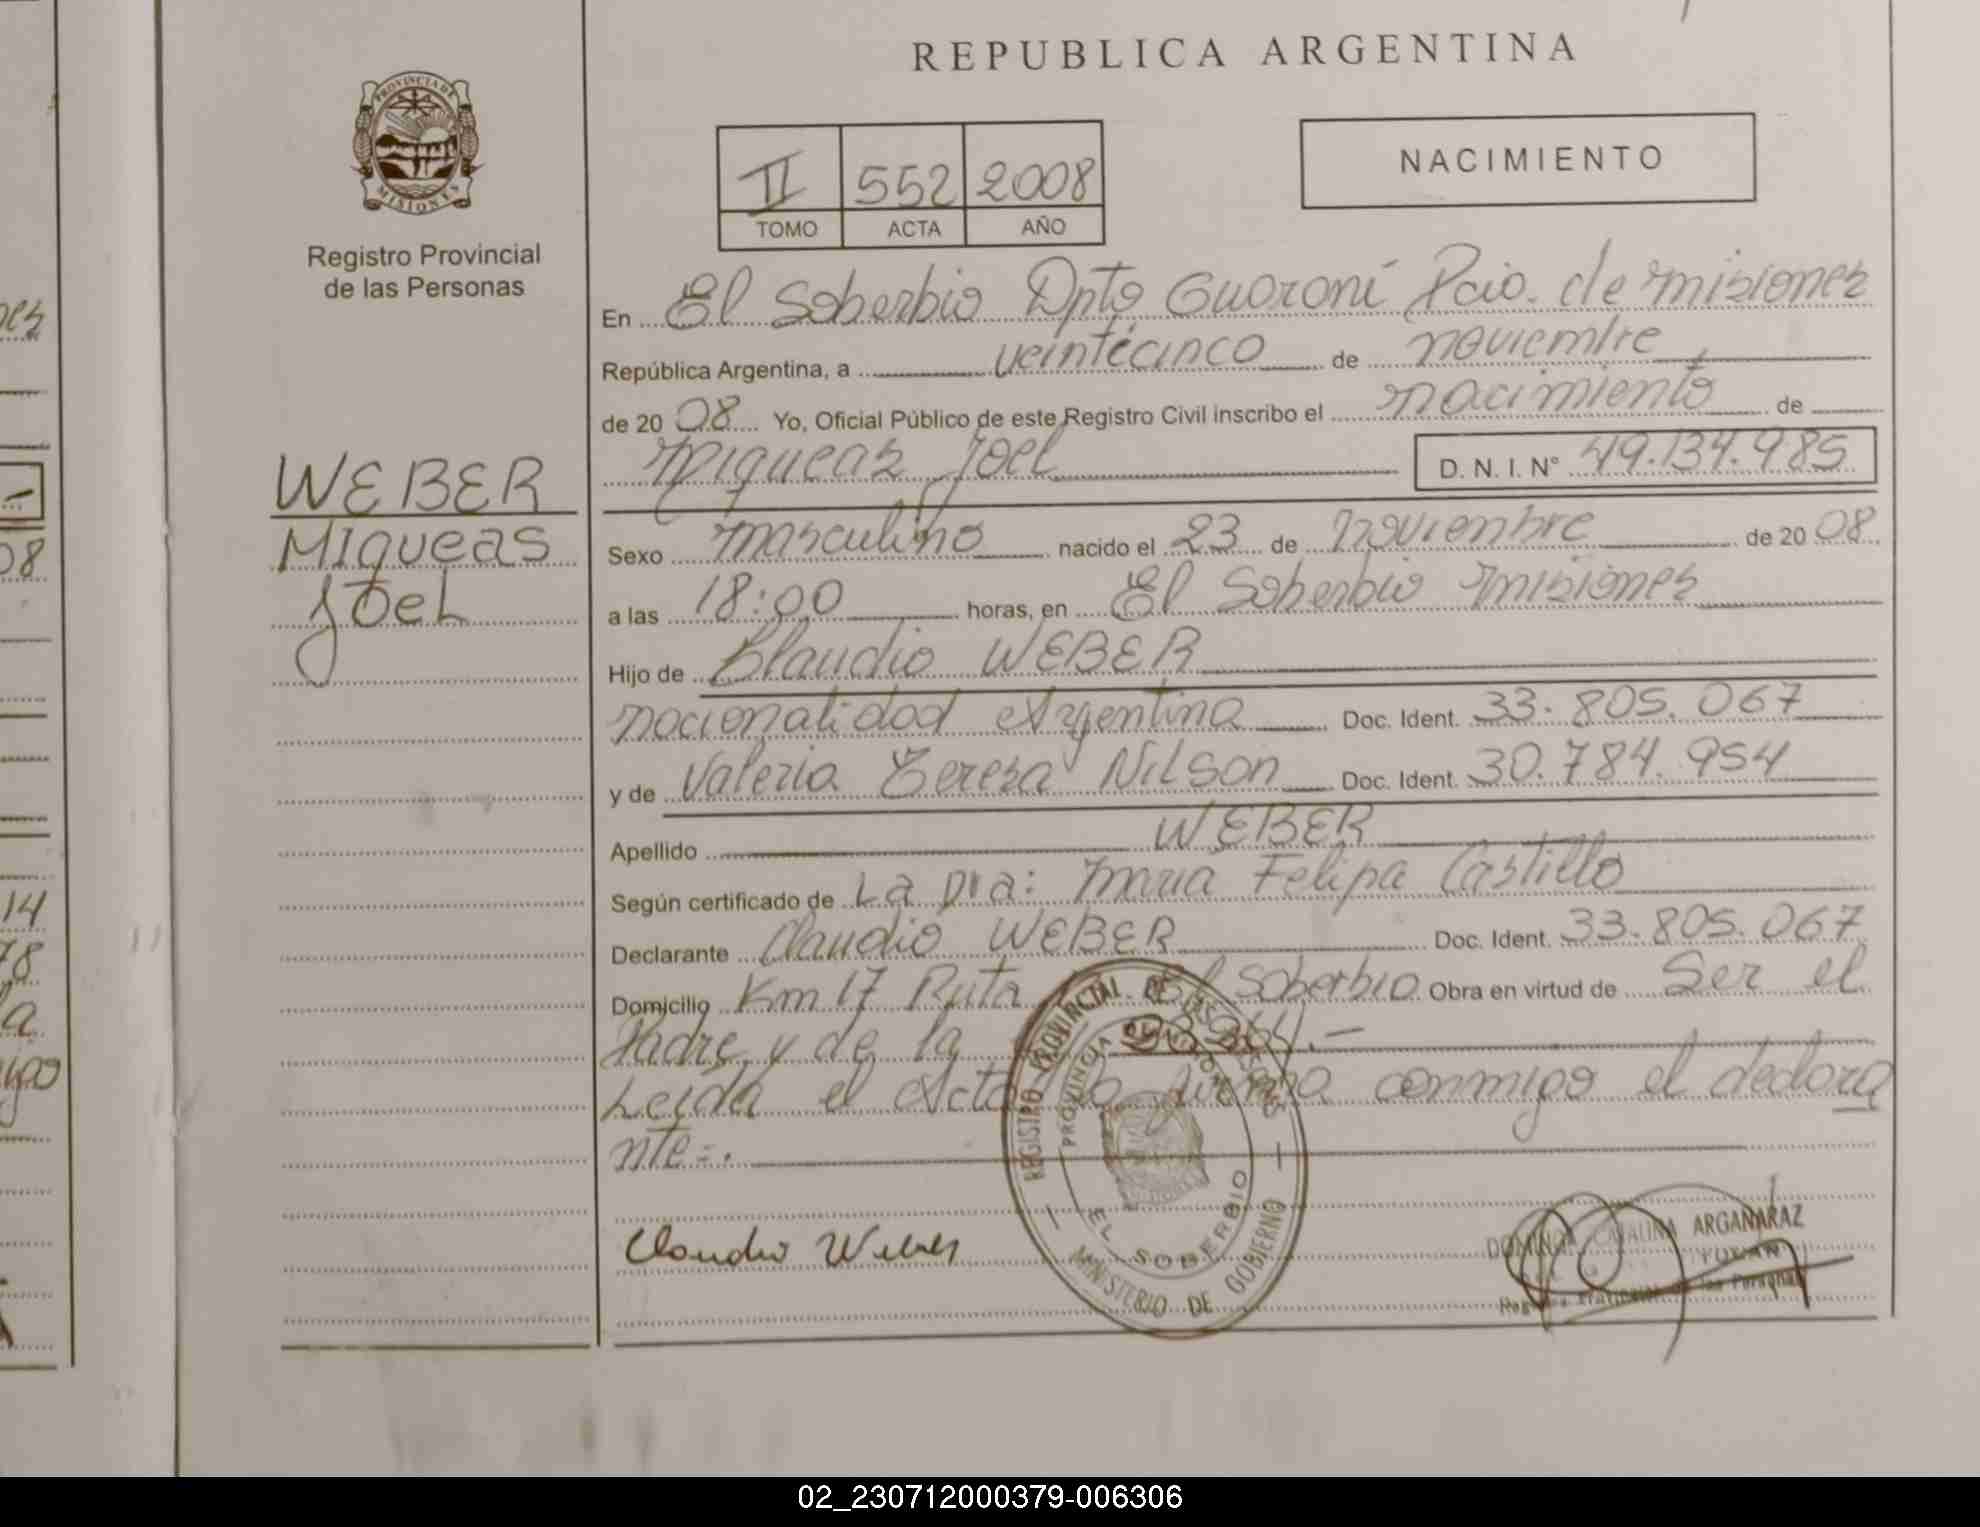 REPUBLICA ARGENTINA
PROVINCIA DE
MISIONES
Registro Provincial
de las Personas
II 552 2008
TOMO ACTA AÑO
NACIMIENTO
En El Soberbio Dpto Guaraní Pcia. de misiones
República Argentina, a veinticinco de noviembre
de 2008 Yo, Oficial Público de este Registro Civil inscribo el nacimiento de
Miqueas Joel D. N. I. N° 49.134.985
WEBER
Miqueas
Joel
Sexo masculino nacido el 23 de Noviembre de 2008
a las 18:00 horas, en El Soberbio misiones
Hijo de Claudio WEBER
nacionalidad Argentina Doc. Ident. 33.805.067
y de Valeria Teresa Nilson Doc. Ident. 30.784.954
Apellido WEBER
Según certificado de La Dra: Maria Felipa Castillo
Declarante Claudio WEBER Doc. Ident. 33.805.067
Domicilio Km 17 Ruta El Soberbio Obra en virtud de Ser el
Padre y de la
Leida el Acta la firma conmigo el declara
nte=.
Claudio Weber
REGISTRO PROVINCIAL DE LAS PERSONAS
PROVINCIA DE MISIONES
EL SOBERBIO
MINISTERIO DE GOBIERNO
CATALINA ARGAÑARAZ
14
78
08
02_230712000379-006306